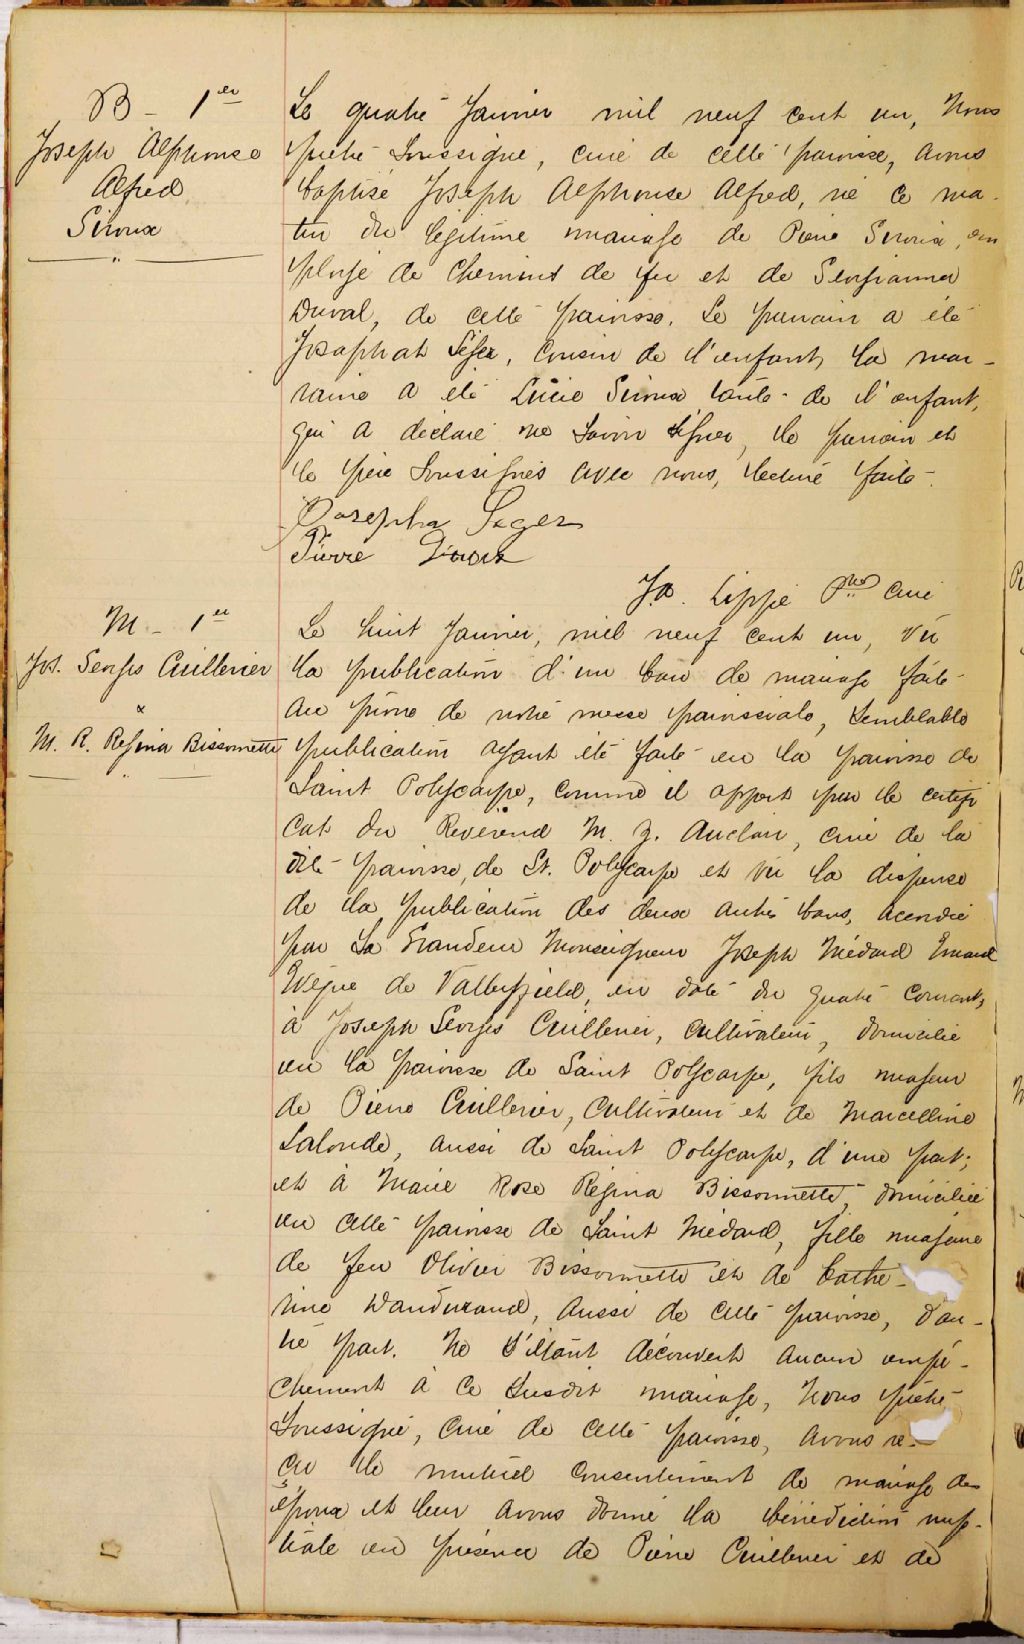 B - 1er
Joseph Alphonse
Alfred
Siroux
Le quatre Janvier mil neuf cent un, Nous
prêtre soussigné, curé de cette paroisse, avons
baptisé Joseph Alphonse Alfred, né ce ma-
tin du légitime mariage de Pierre Siroux, em
ployé de chemins de fer et de Georgianna
Duval, de cette paroisse. Le parrain a été
Josaphat Léger, cousin de l'enfant, la mar-
raine a été Lucie Siroux tante de l'enfant,
qui a déclaré ne savoir signer, le parrain et
le père soussignés avec nous, lecture faite.
Josepha Leger
Pierre Siroux
J.A. Lippé Ptre curé
M - 1er
Jos. Georges Cuillerier
&
M. R. Régina Bissonnette
Le huit Janvier, mil neuf cent un, Vu
la publication d'un ban de mariage faite
au prône de notre messe paroissiale, semblable
publication ayant été faite en la paroisse de
Saint Polycarpe, comme il appert par le certifi
cat du Révérend M. J. Auclair, curé de la
dite paroisse, de St. Polycarpe et vu la dispense
de la publication des deux autres bans, accordée
par Sa Grandeur Monseigneur Joseph Médard Emard
Evêque de Valleyfield, en date du quatre courant,
à Joseph Georges Cuillerier, cultivateur, domicilié
en la paroisse de Saint Polycarpe, fils majeur
de Pierre Cuillerier, cultivateur et de Marcelline
Lalonde, aussi de Saint Polycarpe, d'une part;
et à Marie Rose Régina Bissonnette, domiciliée
en cette paroisse de Saint Médard, fille majeure
de feu Olivier Bissonnette et de Cathe-
rine Dandurand, aussi de cette paroisse, d'au-
tre part. Ne s'étant découvert aucun empê-
chement à ce susdit mariage, Nous prêtre
soussigné, curé de cette paroisse, avons re-
çu le mutuel consentement de mariage des
époux et leur avons donné la bénédiction nup-
tiale en présence de Pierre Cuillerier et de